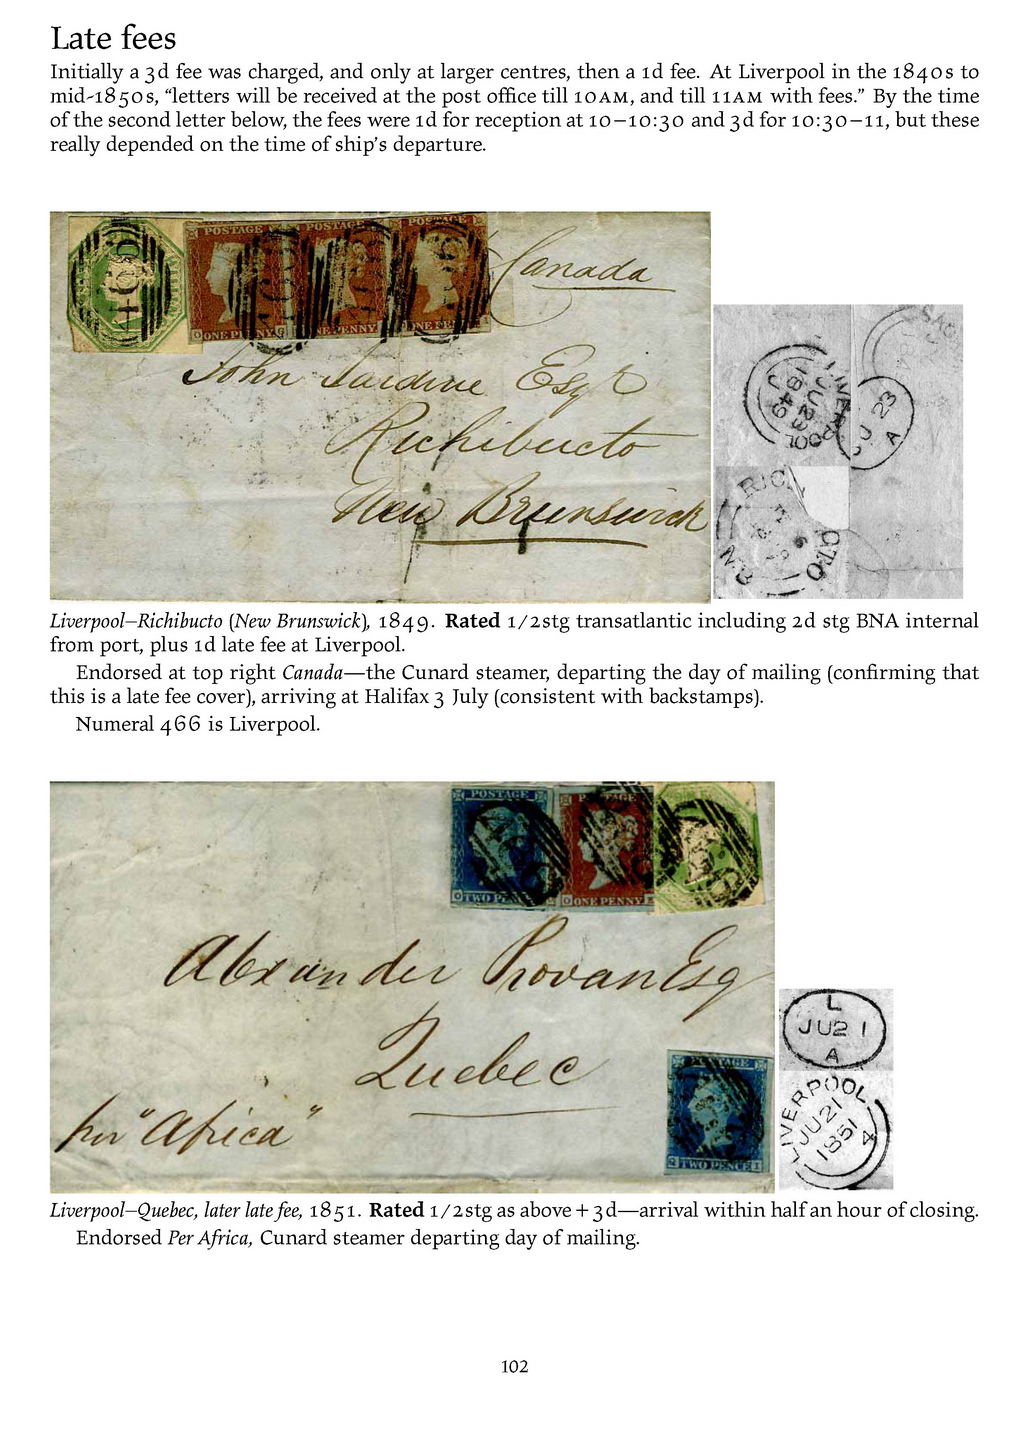 Late fees
Initially a 3d fee was charged, and only at larger centres, then a 1d fee. At Liverpool in the 1840s to
mid-1850s, “letters will be received at the post office till 10AM, and till 11AM with fees.” By the time
of the second letter below, the fees were 1d for reception at 10–10:30 and 3d for 10:30–11, but these
really depended on the time of ship’s departure.
POSTAGE POSTAGE POSTAGE
ONE PENNY ONE PENNY ONE PENNY
Canada
John Jardine Esqr
Richibucto
New Brunswick
LIVERPOOL
JU23
1849
JU 23
A
Liverpool–Richibucto (New Brunswick), 1849. Rated 1/2stg transatlantic including 2d stg BNA internal
from port, plus 1d late fee at Liverpool.
Endorsed at top right Canada—the Cunard steamer, departing the day of mailing (confirming that
this is a late fee cover), arriving at Halifax 3 July (consistent with backstamps).
Numeral 466 is Liverpool.
POSTAGE POSTAGE
TWO PENCE ONE PENNY
Alexander Provan Esq
Quebec
per "Africa"
POSTAGE
TWO PENCE
L
JU21
A
LIVERPOOL
JU21
1851
4
Liverpool–Quebec, later late fee, 1851. Rated 1/2stg as above + 3d—arrival within half an hour of closing.
Endorsed Per Africa, Cunard steamer departing day of mailing.
102